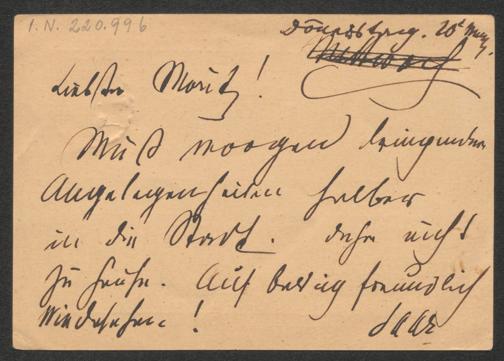 I.N. 220.996
Donnerstag. 20t März.
Mittwoch
Liebster Moritz!
Muß morgen dringender
Angelegenheiten halber
in die Stadt. Daher nicht
zu Hause. Auf baldig freundlich
Wiedersehen!
Saar